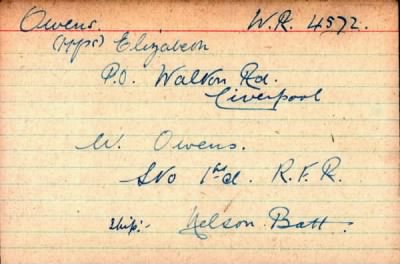 Owens. W.R. 4572.
(Mrs) Elizabeth
P.O. Walton Rd.
Liverpool
W. Owens.
Sto 1st cl. R.F.R.
Ship:- Nelson Batt.